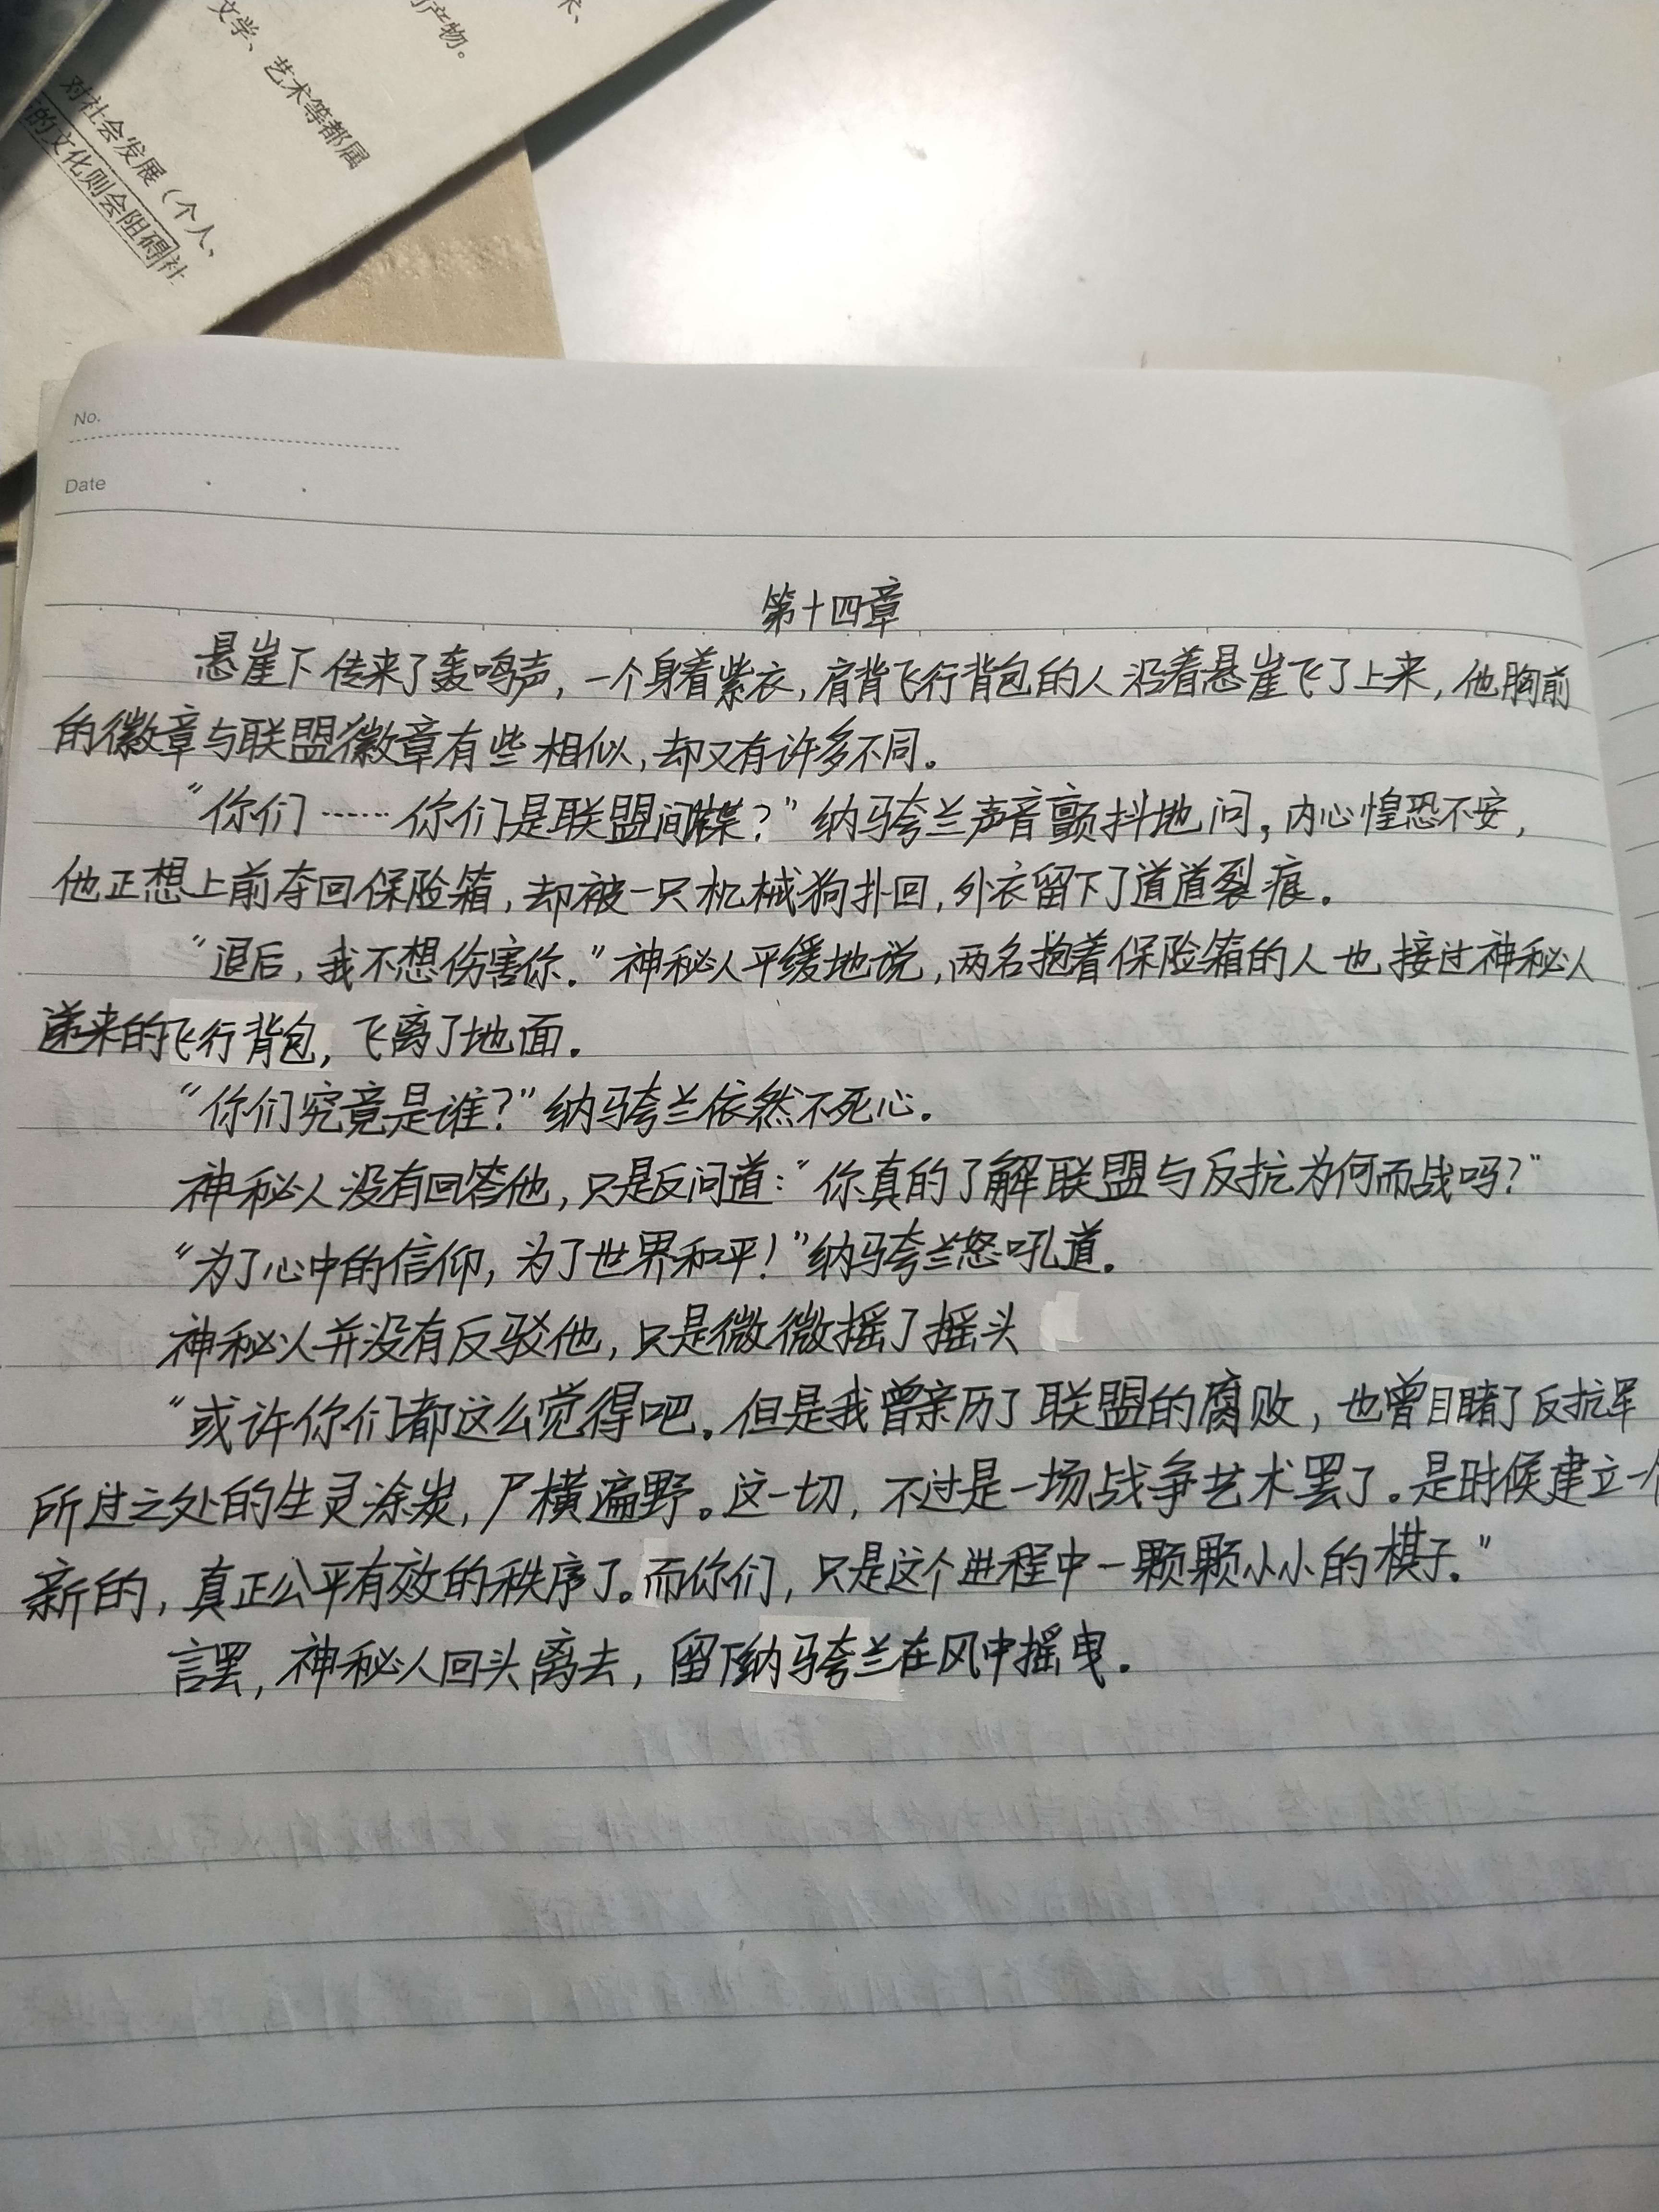 术、
的产物。
文学、艺术等都属
对社会发展（个人、
的文化则会阻碍社
No.
Date
第十四章
悬崖下传来了轰鸣声，一个身着紫衣，肩背飞行背包的人沿着悬崖飞了上来，他胸前
的徽章与联盟徽章有些相似，却又有许多不同。
“你们……你们是联盟间谍？”纳马夸兰声音颤抖地问，内心惶恐不安，
他正想上前夺回保险箱，却被一只机械狗扑回，外衣留下了道道裂痕。
“退后，我不想伤害你。”神秘人平缓地说，两名抱着保险箱的人也接过神秘人
递来的飞行背包，飞离了地面。
“你们究竟是谁？”纳马夸兰依然不死心。
神秘人没有回答他，只是反问道：“你真的了解联盟与反抗为何而战吗？”
“为了心中的信仰，为了世界和平！”纳马夸兰怒吼道。
神秘人并没有反驳他，只是微微摇了摇头
“或许你们都这么觉得吧。但是我曾亲历了联盟的腐败，也曾目睹了反抗军
所过之处的生灵涂炭，尸横遍野。这一切，不过是一场战争艺术罢了。是时候建立一个
新的，真正公平有效的秩序了。而你们，只是这个进程中一颗颗小小的棋子。”
言罢，神秘人回头离去，留下纳马夸兰在风中摇曳。